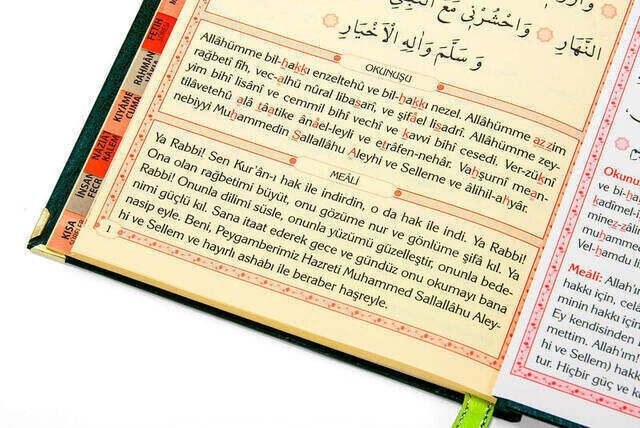 النَّهَارِ وَاحْشُرْنِي مَعَ النَّبِيِّ
وَسَلَّمَ وَاٰلِهِ الْاَخْيَارِ
OKUNUŞU
Allâhümme bil-hakkı enzeltehû ve bil-hakkı nezel. Allâhümme azzim
rağbetî fîh, vec-alhü nûral libasarî, ve şifâel lisadrî. Allâhümme zey-
yim bihî lisânî ve cemmil bihî vechî ve kavvi bihî cesedî. Ver-zûknî
tilâvetehû alâ tâatike ânâel-leyli ve etrâfen-nehâr. Vahşurnî mean-
nebiyyi Muhammedin Sallallâhu Aleyhi ve Selleme ve âlihil-ahyâr.
MEÂLİ
Ya Rabbi! Sen Kur'ân-ı hak ile indirdin, o da hak ile indi. Ya Rabbi!
Ona olan rağbetimi büyüt, onu gözüme nur ve gönlüme şifâ kıl. Ya
Rabbi! Onunla dilimi süsle, onunla yüzümü güzelleştir, onunla bede-
nimi güçlü kıl. Sana itaat ederek gece ve gündüz onu okumayı bana
nasip eyle. Beni, Peygamberimiz Hazreti Muhammed Sallallâhu Aley-
hi ve Sellem ve hayırlı ashabı ile beraber haşreyle.
1
FETİH
RAHMÂN
KIYÂME
CUMA
NÂZİÂT
KALEM
İNSAN
FECR
KISA
Okunu
ve bi-ha
kadîmel
minez-zâli
muhamme
Vel-hamdu l
Meâli: Allah'ı
hakkı için, cel
minin hakkı içi
Ey kendisinden
mettim. Allah'ım!
hi ve Sellem) hakk
tur. Hiçbir güç ve k